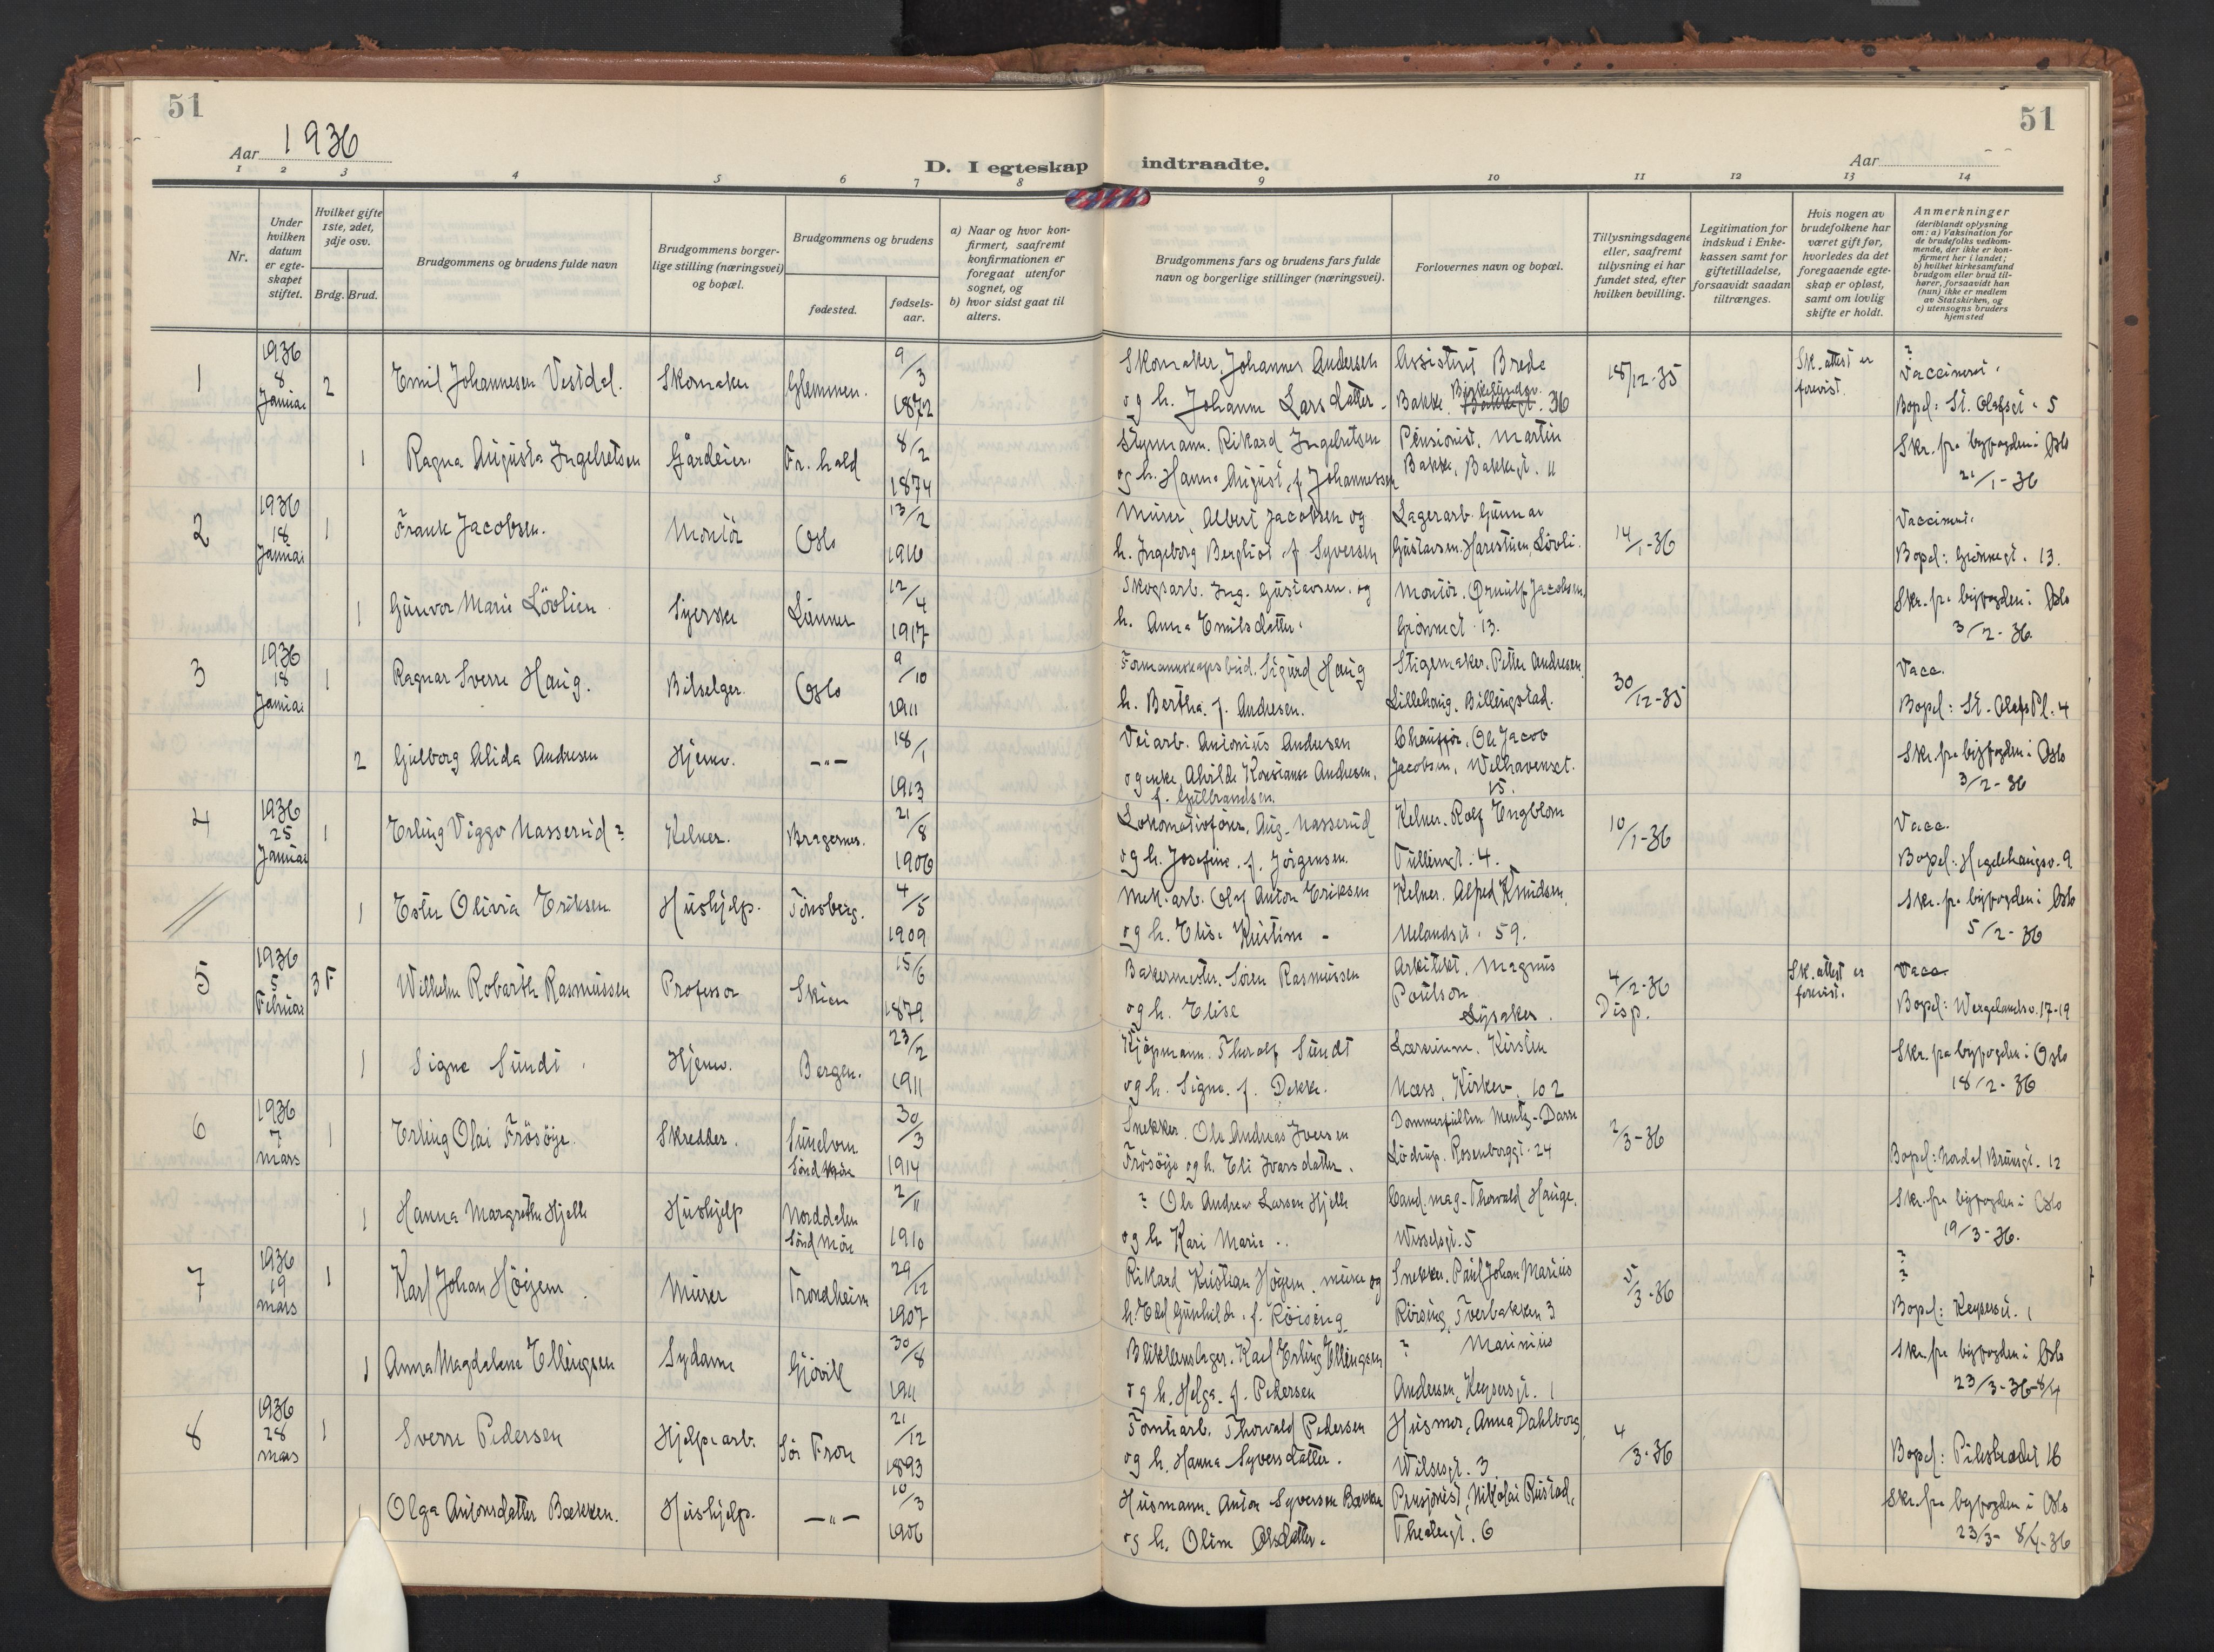 51
51
Aar 1936
Aar
D. I egteskap indtraadte.
1 2 3 4 5 6 7 8 9 10 11 12 13 14
Nr.
Under hvilken datum er egteskapet stiftet.
Hvilket gifte 1ste, 2det, 3dje osv.
Brdg. Brud.
Brudgommens og brudens fulde navn
Brudgommens borgerlige stilling (næringsvei) og bopæl.
Brudgommens og brudens
fødested.
fødselsaar.
a) Naar og hvor konfirmert, saafremt konfirmationen er foregaat utenfor sognet, og
b) hvor sidst gaat til alters.
Brudgommens fars og brudens fars fulde navn og borgerlige stillinger (næringsvei).
Forlovernes navn og bopæl.
Tillysningsdagene eller, saafremt tillysning ei har fundet sted, efter hvilken bevilling.
Legitimation for indskud i Enkekassen samt for giftetilladelse, forsaavidt saadan tiltrænges.
Hvis nogen av brudefolkene har været gift før, hvorledes da det foregaaende egteskap er opløst, samt om lovlig skifte er holdt.
Anmerkninger
(deriblandt oplysning om: a) Vaksination for de brudefolks vedkommende, der ikke er konfirmert her i landet; b) hvilket kirkesamfund brudgom eller brud tilhører, forsaavidt han (hun) ikke er medlem av Statskirken, og c) utensogns bruders hjemsted
1 1936 8 Januar 2 Emil Johannesen Vestdal. Skomaker Glemmen. 9/3 1872
Skomaker, Johannes Andersen og h. Johanne Larsdatter.
Assistent Brede Bakke. Birkelundsv. 36
18/12-35
Sk. attest er forevist.
? Vaccinert.
Bopel: St. Olafsgt. 5
1 Ragna Augusta Ingebretsen Gårdeier. Fr. hald 8/2 1874
Styrmann. Rikard Ingebretsen og h. Hanna August, f. Johannessen
Pensionist. Martin Bakke, Bakkegt. 11
Skr. fra byfogden i Oslo 21/1-36
2 1936 18 Januar 1 Frank Jacobsen. Montör Oslo 13/2 1916
Murer, Albert Jacobsen og h. Ingeborg Bergliot f. Syversen
Lagerarb. Gunnar Gustavsen. Harestuen Lövli.
14/1-36
Vaccinert.
Bopel: Grönnegt. 13.
1 Gunvor Marie Lövlien Syerske Lunner 12/4 1917
Skogsarb. Ing. Gustavsen. og h. Anna Emilsdatter.
Montör. Ørnulf Jacobsen, Grönnegt. 13.
Skr. fra byfogden i Oslo 3/2-36.
3 1936 18 Januar 1 Ragnar Sverre Haug. Bilselger. Oslo 9/10 1911
Formannskapsbud. Sigurd Haug h. Bertha. f. Andresen.
Stigemaker. Petter Andresen, Lillehaug, Billingstad.
30/12-35
Vacc.
Bopel: St. Olafs Pl. 4
2 Gulborg Alida Andresen Hjemv. -"- 18/1 1913
Veiarb. Antonius Andresen og enke Alvilde Konstanse Andresen, f. Gulbrandsen.
Chauffør, Ole Jacob Jacobsen, Welhavensgt. 15.
Skr. fra byfogden i Oslo 3/2-36
4 1936 25 Januar 1 Erling Viggo Nasserud? Kelner. Bragernes. 21/8 1906
Lokomotivförer, Aug. Nasserud og h. Josefine. f. Jörgensen.
Kelner. Rolf Engblom Tullinsgt. 4.
10/1-36
Vacc.
Bopel: Hegdehaugsv. 9
1 Ester Olivia Eriksen Hushjelp. Tönsberg. 4/5 1909
Mek. arb. Olaf Anton Eriksen og h. Elise Kristine -
Kelner. Alfred Knudsen, Uelandsgt. 59.
Skr. fra byfogden i Oslo 5/2-36
5 1936 5 Februar 3 F Wilhelm Robarth Rasmussen Professor Skien 15/6 1879
Bakermester. Sören Rasmussen og h. Elise
Arkitekt. Magnus Poulson Lysaker.
4/2-36 Disp.
Sk. attest er forevist.
Vacc
Bopel: Wergelandsv. 17-19
1 Signe Sundt Hjemv. Bergen. 23/2 1911
Kjöpmann. Thorolf Sundt og h. Signe. f. Dekke.
Lærerinne. Kirsten Næss, Kirkev. 102
Skr. fra byfogden i Oslo 18/2-36
6 1936 7 mars 1 Erling Olai Frösöye. Skredder. Sunelven Sönd Möre 30/3 1914
Snekker. Ole Andreas Iversen Frösöye og h. Eli Ivarsdatter.
Dommerfullm. Mentz-Darre Lödrup. Rosenborggt. 24
2/3-36
Bopel: Nordal Brunsgt. 12
1 Hanna Margrethe Hjelle Hushjelp Norddalen Sönd Möre 2/11 1910
? Ole Andreas Larsen Hjelle og h. Kari Marie
Cand. mag. Thorvald Hauge. Wesselsgt. 5
Skr. fra byfogden i Oslo 19/3-36.
7 1936 19 mars 1 Karl Johan Höyem Murer Trondheim 29/12 1907
Rikard Kristian Höyem. murer og h. Gunhilde. f. Röiseng
Snekker. Paul Johan Marius Röiseng, Tverbakken 3
5/3-36
? ?
Bopel: Keysersgt. 1
1 Anna Magdalene Ellingsen Sydame Gjövik 30/8 1911
Blikkenslager. Karl Erling Ellingsen og h. Helga. f. Pedersen
? Marinius Andersen, Keysersgt. 1
Skr. fra byfogden i Oslo 23/3-36-8/4
8 1936 28 mars 1 Sverre Pedersen Hjelpearb. Sör Fron 21/12 1893
Tomtarb. Thorvald Pedersen og h. Hanna Syversdatter.
Husmor, Anna Dahlborg, Wilsesgt. 3
4/3-36
Bopel: Pilestredet 16
1 Olga Antonsdatter Bækken. Hushjelp. -"- 10/3 1906
Husmann, Anton Syversen Bækken og h. Oline Olsdatter.
Pensjonist, Nikolai Rustad, Theatergt. 6
Skr. fra byfogden i Oslo 23/3- 8/4-36